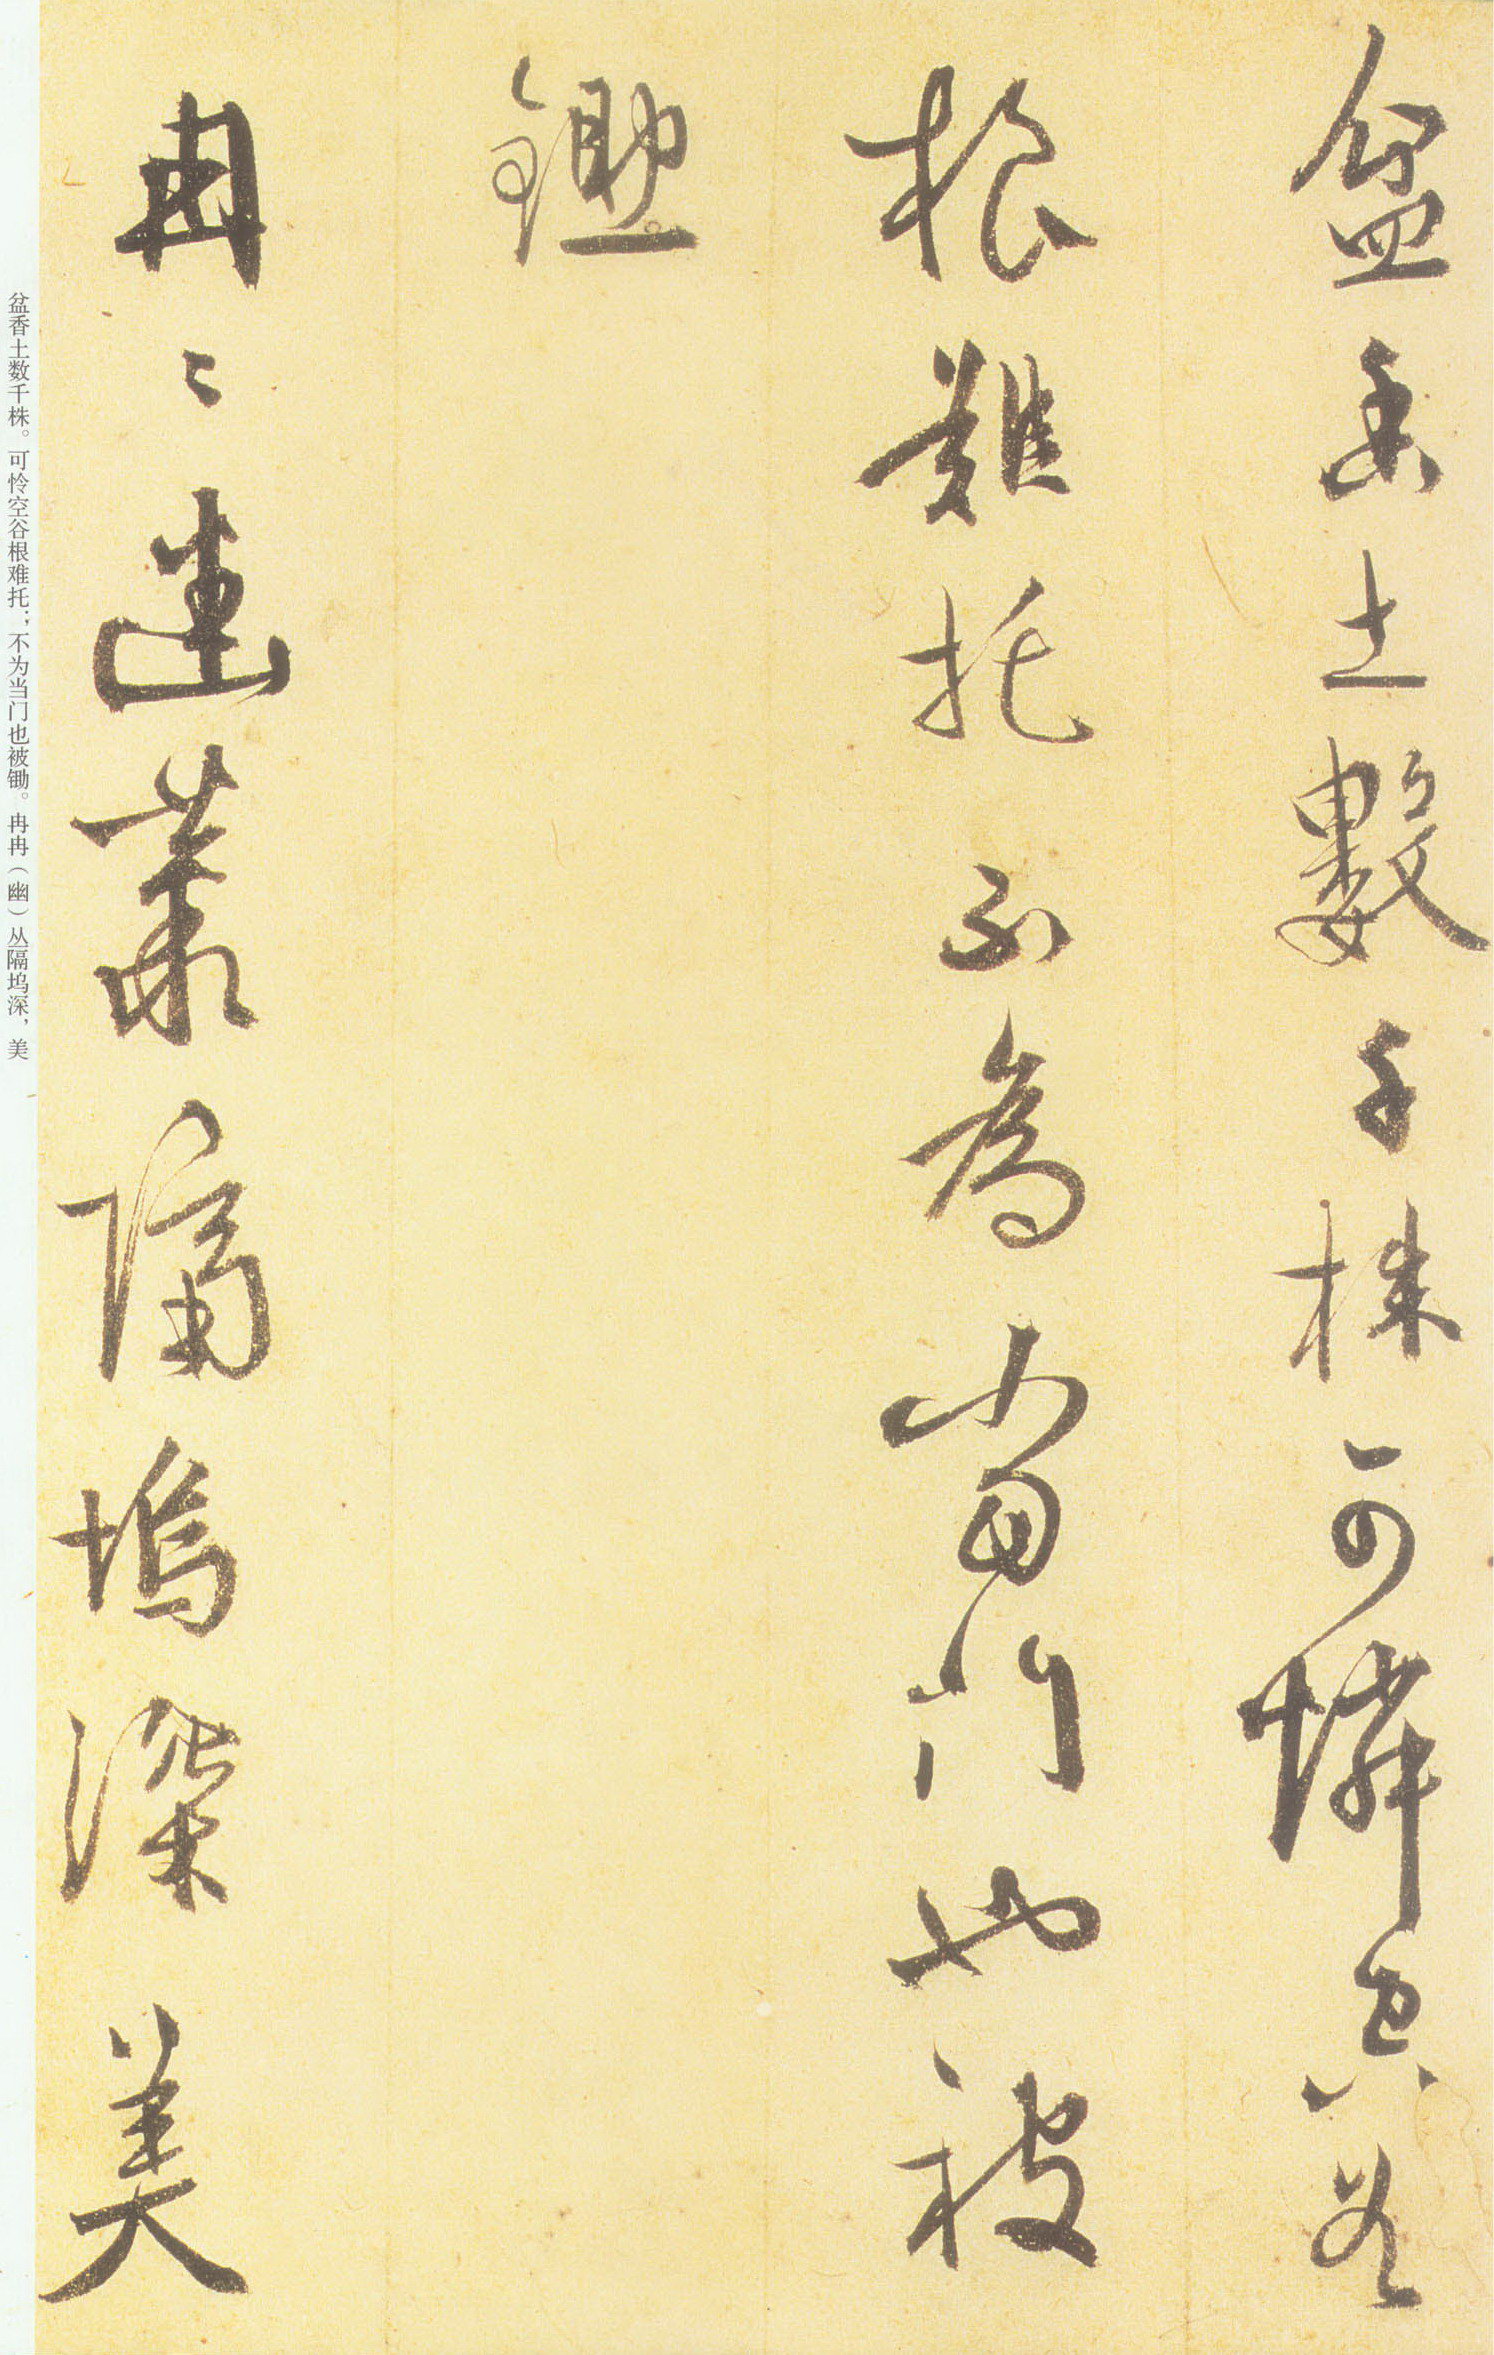 盆香土數千株可憐空谷
根難托不為當門也被
鋤
冉〻幽叢隔塢深美
盆香土数千株。可怜空谷根难托；不为当门也被锄。冉冉（幽）丛隔坞深，美